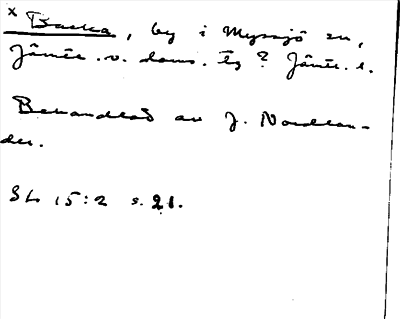 x Backa, by i Myssjö sn,
Jämtl. v. doms. Eg ? Jämtl. l.
Behandlad av J. Nordlan-
der.
SL 15:2 s. 21.